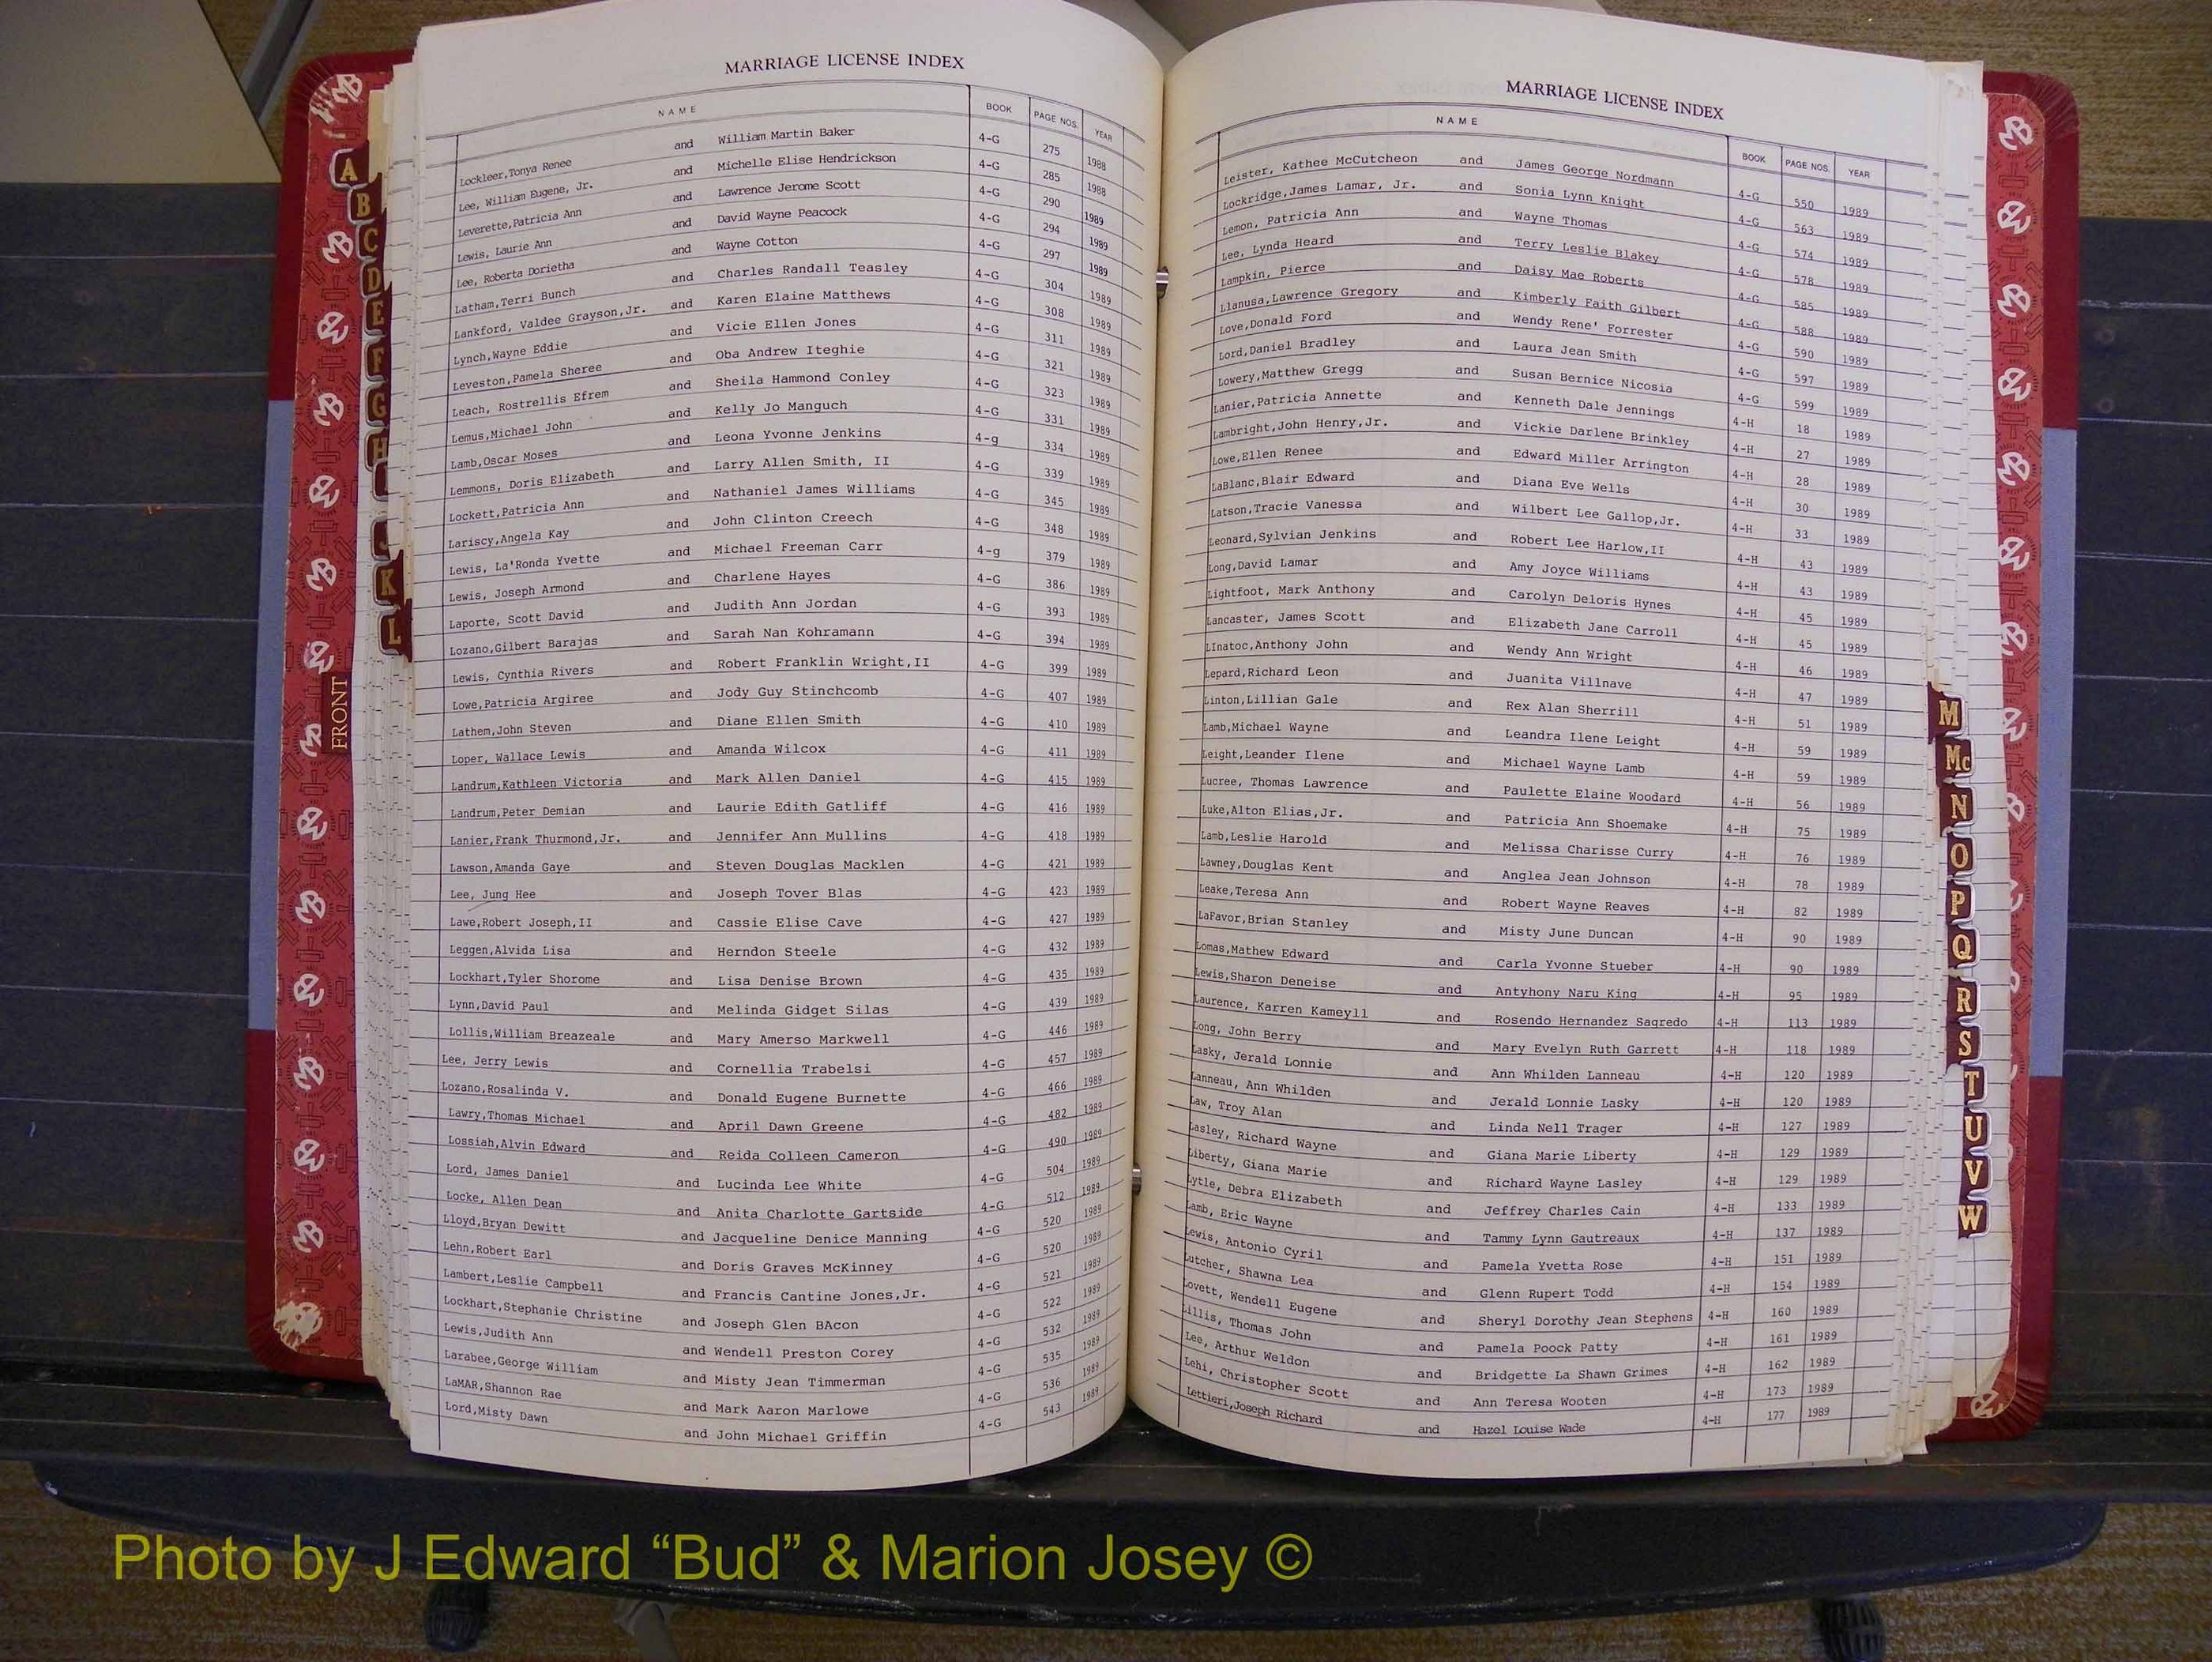 MARRIAGE LICENSE INDEX
NAME BOOK PAGE NOS. YEAR
Lockleer,Tonya Renee and William Martin Baker 4-G 275 1988
Lee, William Eugene, Jr. and Michelle Elise Hendrickson 4-G 285 1988
Leverette,Patricia Ann and Lawrence Jerome Scott 4-G 290 1989
Lewis, Laurie Ann and David Wayne Peacock 4-G 294 1989
Lee, Roberta Dorietha and Wayne Cotton 4-G 297 1989
Latham,Terri Bunch and Charles Randall Teasley 4-G 304 1989
Lankford, Valdee Grayson,Jr. and Karen Elaine Matthews 4-G 308 1989
Lynch,Wayne Eddie and Vicie Ellen Jones 4-G 311 1989
Leveston,Pamela Sheree and Oba Andrew Iteghie 4-G 321 1989
Leach, Rostrellis Efrem and Sheila Hammond Conley 4-G 323 1989
Lemus,Michael John and Kelly Jo Manguch 4-G 331 1989
Lamb,Oscar Moses and Leona Yvonne Jenkins 4-g 334 1989
Lemmons, Doris Elizabeth and Larry Allen Smith, II 4-G 339 1989
Lockett,Patricia Ann and Nathaniel James Williams 4-G 345 1989
Lariscy,Angela Kay and John Clinton Creech 4-G 348 1989
Lewis, La'Ronda Yvette and Michael Freeman Carr 4-g 379 1989
Lewis, Joseph Armond and Charlene Hayes 4-G 386 1989
Laporte, Scott David and Judith Ann Jordan 4-G 393 1989
Lozano,Gilbert Barajas and Sarah Nan Kohramann 4-G 394 1989
Lewis, Cynthia Rivers and Robert Franklin Wright,II 4-G 399 1989
Lowe,Patricia Argiree and Jody Guy Stinchcomb 4-G 407 1989
Lathem,John Steven and Diane Ellen Smith 4-G 410 1989
Loper, Wallace Lewis and Amanda Wilcox 4-G 411 1989
Landrum,Kathleen Victoria and Mark Allen Daniel 4-G 415 1989
Landrum,Peter Demian and Laurie Edith Gatliff 4-G 416 1989
Lanier,Frank Thurmond,Jr. and Jennifer Ann Mullins 4-G 418 1989
Lawson,Amanda Gaye and Steven Douglas Macklen 4-G 421 1989
Lee, Jung Hee and Joseph Tover Blas 4-G 423 1989
Lawe,Robert Joseph,II and Cassie Elise Cave 4-G 427 1989
Leggen,Alvida Lisa and Herndon Steele 4-G 432 1989
Lockhart,Tyler Shorome and Lisa Denise Brown 4-G 435 1989
Lynn,David Paul and Melinda Gidget Silas 4-G 439 1989
Lollis,William Breazeale and Mary Amerso Markwell 4-G 446 1989
Lee, Jerry Lewis and Cornellia Trabelsi 4-G 457 1989
Lozano,Rosalinda V. and Donald Eugene Burnette 4-G 466 1989
Lawry,Thomas Michael and April Dawn Greene 4-G 482 1989
Lossiah,Alvin Edward and Reida Colleen Cameron 4-G 490 1989
Lord, James Daniel and Lucinda Lee White 4-G 504 1989
Locke, Allen Dean and Anita Charlotte Gartside 4-G 512 1989
Lloyd,Bryan Dewitt and Jacqueline Denice Manning 4-G 520 1989
Lehn,Robert Earl and Doris Graves McKinney 4-G 520 1989
Lambert,Leslie Campbell and Francis Cantine Jones,Jr. 4-G 521 1989
Lockhart,Stephanie Christine and Joseph Glen BAcon 4-G 522 1989
Lewis,Judith Ann and Wendell Preston Corey 4-G 532 1989
Larabee,George William and Misty Jean Timmerman 4-G 535 1989
LaMAR,Shannon Rae and Mark Aaron Marlowe 4-G 536 1989
Lord,Misty Dawn and John Michael Griffin 4-G 543 1989
MARRIAGE LICENSE INDEX
NAME BOOK PAGE NOS. YEAR
Leister, Kathee McCutcheon and James George Nordmann 4-G 550 1989
Lockridge,James Lamar, Jr. and Sonia Lynn Knight 4-G 563 1989
Lemon, Patricia Ann and Wayne Thomas 4-G 574 1989
Lee, Lynda Heard and Terry Leslie Blakey 4-G 578 1989
Lampkin, Pierce and Daisy Mae Roberts 4-G 585 1989
Llanusa,Lawrence Gregory and Kimberly Faith Gilbert 4-G 588 1989
Love,Donald Ford and Wendy Rene' Forrester 4-G 590 1989
Lord,Daniel Bradley and Laura Jean Smith 4-G 597 1989
Lowery,Matthew Gregg and Susan Bernice Nicosia 4-G 599 1989
Lanier,Patricia Annette and Kenneth Dale Jennings 4-H 18 1989
Lambright,John Henry,Jr. and Vickie Darlene Brinkley 4-H 27 1989
Lowe,Ellen Renee and Edward Miller Arrington 4-H 28 1989
LaBlanc,Blair Edward and Diana Eve Wells 4-H 30 1989
Latson,Tracie Vanessa and Wilbert Lee Gallop,Jr. 4-H 33 1989
Leonard,Sylvian Jenkins and Robert Lee Harlow,II 4-H 43 1989
Long,David Lamar and Amy Joyce Williams 4-H 43 1989
Lightfoot, Mark Anthony and Carolyn Deloris Hynes 4-H 45 1989
Lancaster, James Scott and Elizabeth Jane Carroll 4-H 45 1989
LInatoc,Anthony John and Wendy Ann Wright 4-H 46 1989
Lepard,Richard Leon and Juanita Villnave 4-H 47 1989
Linton,Lillian Gale and Rex Alan Sherrill 4-H 51 1989
Lamb,Michael Wayne and Leandra Ilene Leight 4-H 59 1989
Leight,Leander Ilene and Michael Wayne Lamb 4-H 59 1989
Lucree, Thomas Lawrence and Paulette Elaine Woodard 4-H 56 1989
Luke,Alton Elias,Jr. and Patricia Ann Shoemake 4-H 75 1989
Lamb,Leslie Harold and Melissa Charisse Curry 4-H 76 1989
Lawney,Douglas Kent and Anglea Jean Johnson 4-H 78 1989
Leake,Teresa Ann and Robert Wayne Reaves 4-H 82 1989
LaFavor,Brian Stanley and Misty June Duncan 4-H 90 1989
Lomas,Mathew Edward and Carla Yvonne Stueber 4-H 90 1989
Lewis,Sharon Deneise and Antyhony Naru King 4-H 95 1989
Laurence, Karren Kameyll and Rosendo Hernandez Sagredo 4-H 113 1989
Long, John Berry and Mary Evelyn Ruth Garrett 4-H 118 1989
Lasky, Jerald Lonnie and Ann Whilden Lanneau 4-H 120 1989
Lanneau, Ann Whilden and Jerald Lonnie Lasky 4-H 120 1989
Law, Troy Alan and Linda Nell Trager 4-H 127 1989
Lasley, Richard Wayne and Giana Marie Liberty 4-H 129 1989
Liberty, Giana Marie and Richard Wayne Lasley 4-H 129 1989
Lytle, Debra Elizabeth and Jeffrey Charles Cain 4-H 133 1989
Lamb, Eric Wayne and Tammy Lynn Gautreaux 4-H 137 1989
Lewis, Antonio Cyril and Pamela Yvetta Rose 4-H 151 1989
Lutcher, Shawna Lea and Glenn Rupert Todd 4-H 154 1989
Lovett, Wendell Eugene and Sheryl Dorothy Jean Stephens 4-H 160 1989
Lillis, Thomas John and Pamela Poock Patty 4-H 161 1989
Lee, Arthur Weldon and Bridgette La Shawn Grimes 4-H 162 1989
Lehi, Christopher Scott and Ann Teresa Wooten 4-H 173 1989
Lettieri,Joseph Richard and Hazel Louise Wade 4-H 177 1989
A
B
C
D
E
F
G
H
J
K
L
FRONT
M
Mc
N
O
P
Q
R
S
T
U
V
W
Photo by J Edward “Bud” & Marion Josey ©